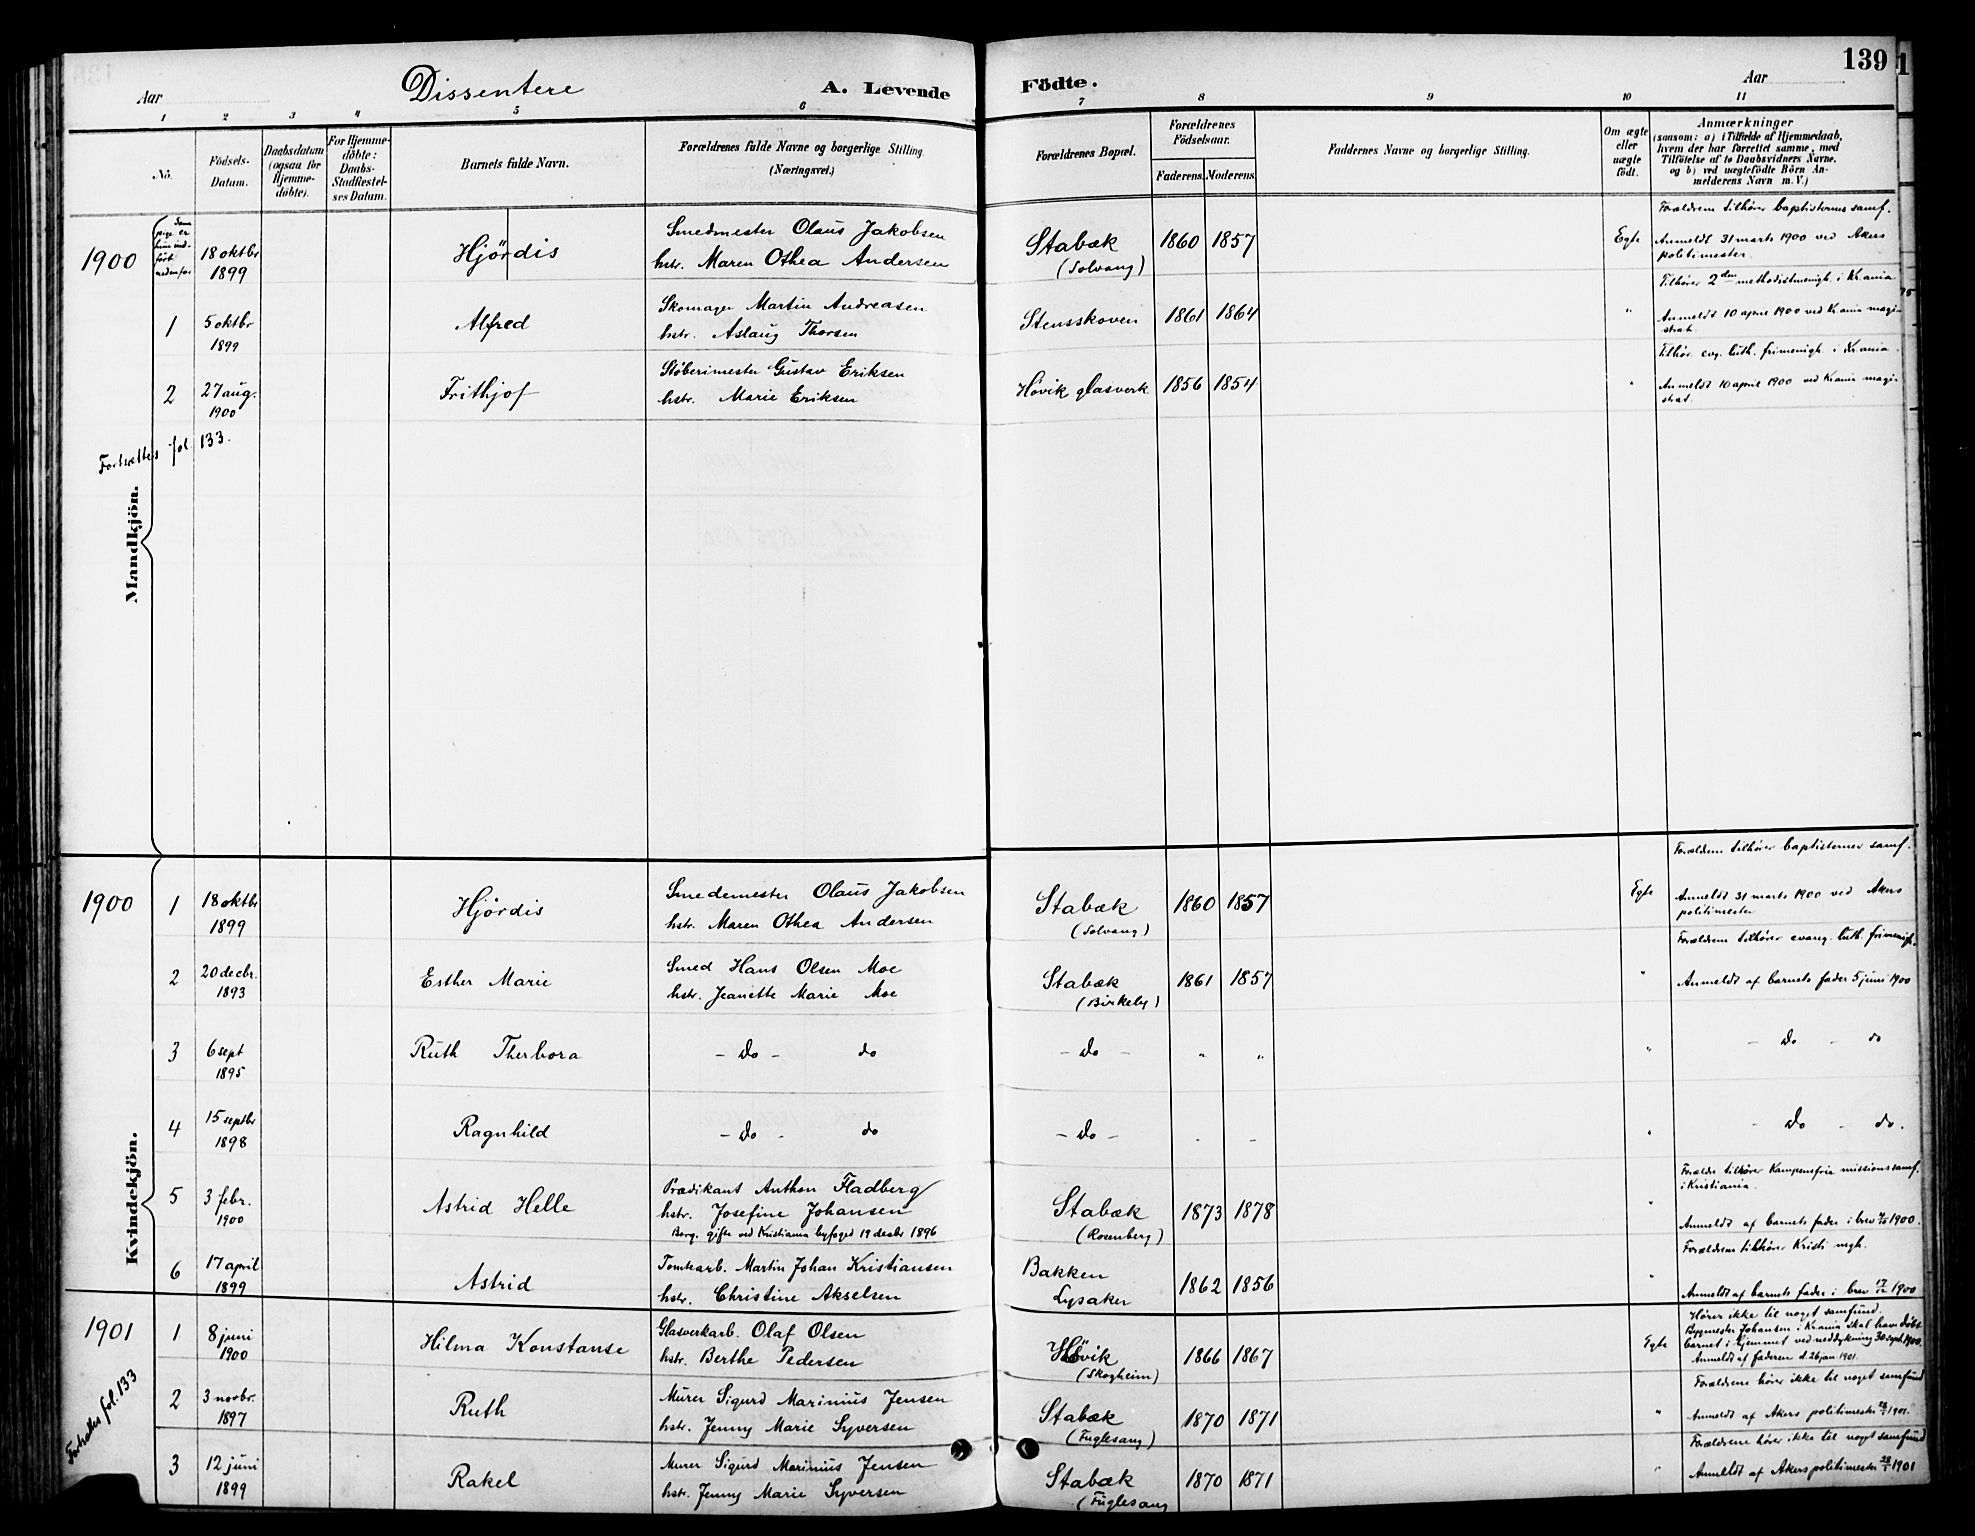 139
Aar
Dissentere
A. Levende
Födte.
Aar
1 2 3 4 5 6 7 8 9 10 11
No.
Födsels-Datum.
Daabsdatum (ogsaa for Hjemme-döbte).
For Hjemme-döbte: Daabs-Stadfæstel-ses Datum.
Barnets fulde Navn.
Forældrenes fulde Navne og borgerlige Stilling.
(Næringsvei.)
Forældrenes Bopæl.
Forældrenes Födselsaar.
Faderens. Moderens.
Faddernes Navne og borgerlige Stilling.
Om ægte eller uægte födt.
Anmærkninger
(saasom: a) i Tilfælde af Hjemmedaab,
hvem der har forrettet samme, med
Tilföielse af to Daabsvidners Navne.
og b) ved uægtefödte Börn An-
melderens Navn m. V.)
Mandkjön.
1900 18 oktbr 1899 Hjördis Smedmester Olaus Jakobsen
hstr. Maren Othea Andersen
Stabæk (Solvang) 1860 1857 Egte
Forældrene tilhører baptisternes samf.
Anmeldt 31 marts 1900 ved Akers
politimester.
1 5 oktbr 1899 Alfred Skomager Martin Andreasen
hstr. Aslaug Thorsen
Stensskoven 1861 1864 "
Tilhører 2den methodistmenigh. i Krania
Anmeldt 10 april 1900 ved Krania magi-
strat.
2 27 aug. 1900 Frithjof Støberimester Gustav Eriksen
hstr. Marie Eriksen
Høvik glasverk 1856 1854 "
Tilhør. evg. luth. frimenigh. i Krania.
Anmeldt 10 april 1900 ved Krania magi-
strat.
Fortsættes fol. 133.
Kvindekjön.
1900 1 18 oktbr 1899 Hjördis Smedemester Olaus Jakobsen
hstr. Maren Othea Andersen
Stabæk (Solvang) 1860 1857 Egte
Forældrene tilhører baptisternes samf.
Anmeldt 31 marts 1900 ved Akers
politimester
2 20 decbr. 1893 Esther Marie Smed Hans Olsen Moe
hstr. Jeanette Marie Moe
Stabæk (Birkeby) 1861 1857 "
Forældrene tilhører evang. luth. frimenigh.
Anmeldt af barnets fader 5 juni 1900
3 6 sept 1895 Ruth Therbora - do - do - do - " " " - do - do
4 15 septbr 1898 Ragnhild - do - do - do - " " " - do - do.
5 3 febr. 1900 Astrid Helle Prædikant Anthon Fladberg
hstr. Josefine Johansen
Borg. gifte ved Kristiania byfoged 19 decbr 1896
Stabæk (Rosenberg) 1873 1878 "
Forældre tilhører Kampensfrie missionssamf.
i Kristiania.
Anmeldt af barnets fader i brev 1900.
6 17 april 1899 Astrid Tomtearb. Martin Johan Kristiansen
hstr. Christine Akselsen
Bakken Lysaker 1862 1856 "
Forældrene tilhører Kristi mgh.
Anmeldt af barnets fader i brev 17/12 1900
1901 1 8 juni 1900 Hilma Konstanse Glasverkarb. Olaf Olsen
hstr. Berthe Pedersen
Høvik (Skogheim) 1866 1867 Egte
Hører ikke til noget samfund.
Bygmester Johansen i Krania skal have døbt
barnet i hjemmet ved neddykning 30 sept. 1900.
Anmeldt af faderen d. 26 jan. 1901.
2 3 novbr. 1897 Ruth Murer Sigurd Marinius Jensen
hstr. Jenny Marie Syversen
Stabæk (Fuglesang) 1870 1871 "
Forældrene hører ikke til noget samfund
Anmeldt af Akers politimester 28/1 1901.
3 12 juni 1899 Rakel Murer Sigurd Marinius Jensen
hstr. Jenny Marie Syversen
Stabæk (Fuglesang 1870 1871 "
Forældrene hører ikke til noget samfund
Anmeldt af Akers politimester 28/1 1901
Fortsættes fol. 133